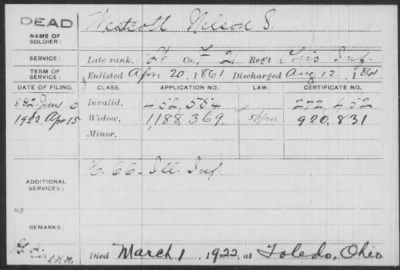 DEAD
NAME OF SOLDIER: Westcott Nelson S.
SERVICE: Late rank, Co. F 21 Reg't Ohio Inf.
TERM OF SERVICE: Enlisted Apr 20, 1861 Discharged Aug 12, 1861
DATE OF FILING. CLASS. APPLICATION NO. LAW. CERTIFICATE NO.
Invalid,
1922, Apr 15 Widow, 1,188,369, 920,831
Minor,
ADDITIONAL SERVICES: 66 Ill. Inf.
REMARKS:
Died March 1, 1922, at Toledo, Ohio